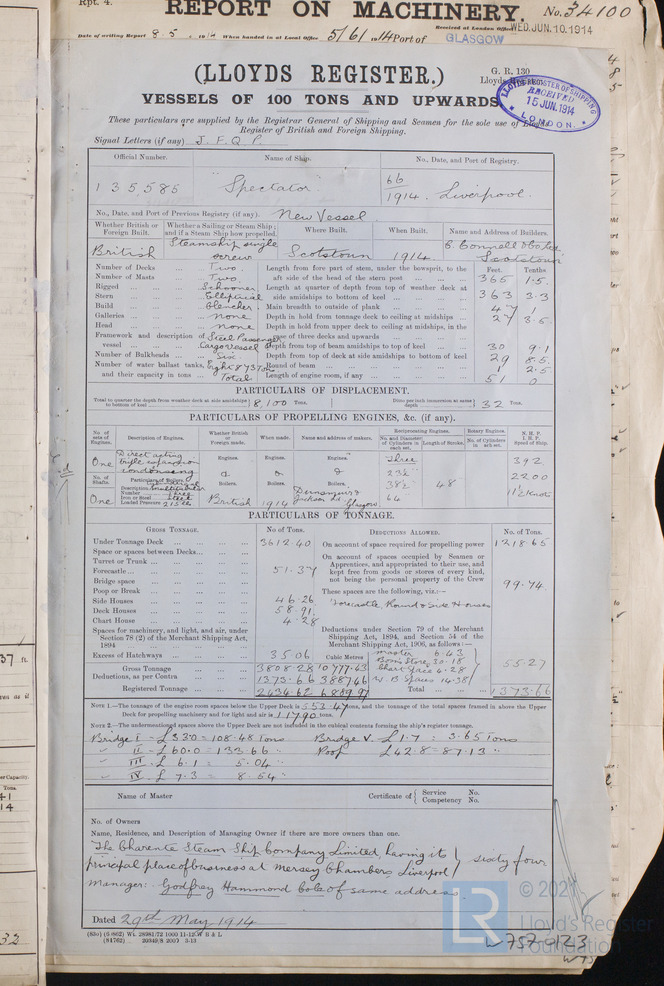 Rpt. 4.
REPORT ON MACHINERY.
No. 34100
Date of writing Report 8.5 1914 When handed in at Local Office 5/6/1914 Port of GLASGOW
Received at London Office WED. JUN. 10. 1914
(LLOYDS REGISTER.)
G. R. 130
VESSELS OF 100 TONS AND UPWARDS
LLOYDS REGISTER OF SHIPPING
RECEIVED
15 JUN. 1914
LONDON.
These particulars are supplied by the Registrar General of Shipping and Seamen for the sole use of Lloyd's
Register of British and Foreign Shipping.
Signal Letters (if any) J. F. Q. P.
Official Number. Name of Ship. No., Date, and Port of Registry.
135,585 "Spectator" 66/1914. Liverpool.
No., Date, and Port of Previous Registry (if any). New Vessel
Whether British or Foreign Built. Whether a Sailing or Steam Ship; and if a Steam Ship how propelled. Where Built. When Built. Name and Address of Builders.
British Steamship single screw Scotstoun 1914. C. Connell & Co Ltd. Scotstoun
Feet. Tenths.
Number of Decks Two. Length from fore part of stem, under the bowsprit, to the
Number of Masts Two aft side of the head of the stern post 365 1.5.
Rigged Schooner Length at quarter of depth from top of weather deck at
Stern Elliptical side amidships to bottom of keel 363 3.3
Build Clencher Main breadth to outside of plank 47 1
Galleries None Depth in hold from tonnage deck to ceiling at midships 27 3.5
Head None Depth in hold from upper deck to ceiling at midships, in the
Framework and description of vessel Steel Passenger Cargo vessel case of three decks and upwards
Depth from top of beam amidships to top of keel 30 9.1
Number of Bulkheads Six Depth from top of deck at side amidships to bottom of keel 29 8.5
Number of water ballast tanks, Eight 873 Tons Round of beam 1 2.5
and their capacity in tons Total Length of engine room, if any 51 0
PARTICULARS OF DISPLACEMENT.
Total to quarter the depth from weather deck at side amidships to bottom of keel 8,100 Tons. Ditto per inch immersion at same depth 32 Tons.
PARTICULARS OF PROPELLING ENGINES, &c. (if any).
No. of sets of Engines. Description of Engines. Whether British or Foreign made. When made. Name and address of makers. Reciprocating Engines. No. and Diameter of Cylinders in each set. Length of Stroke. Rotary Engines. No. of Cylinders in each set. N. H. P. I. H. P. Speed of Ship.
One Direct acting triple expansion condensing Engines. Engines. Engines. Three 392
23½ 2200
No. of Shafts. Particulars of Boilers. Boilers. Boilers. Boilers. 38½ 48 11½ Knots
Number Three
Iron or Steel Steel
Loaded Pressure 215 lbs
One British 1914 Dunsmuir & Jackson Ld. Glasgow 64
PARTICULARS OF TONNAGE.
GROSS TONNAGE. No. of Tons. DEDUCTIONS ALLOWED. No. of Tons.
Under Tonnage Deck 3612.40 On account of space required for propelling power 1218.65
Space or spaces between Decks On account of spaces occupied by Seamen or
Turret or Trunk Apprentices, and appropriated to their use, and
Forecastle 51.37 kept free from goods or stores of every kind,
Bridge space not being the personal property of the Crew 99.74
Poop or Break These spaces are the following, viz.:—
Side Houses 46.26 Forecastle, Round & Side Houses
Deck Houses 58.91
Chart House 4.28
Spaces for machinery, and light, and air, under Section 78 (2) of the Merchant Shipping Act, 1894
Deductions under Section 79 of the Merchant Shipping Act, 1894, and Section 54 of the Merchant Shipping Act, 1906, as follows:—
Excess of Hatchways 35.06 Cubic Metres Master 6.43
Bosn's Store 30.18
Gross Tonnage 3808.28 10777.43 Chart Space 4.28 55.27
Deductions, as per Contra 1373.66 3887.46 W. B Spaces 14.38
Registered Tonnage 2434.62 6889.97 Total 1373.66
NOTE 1.—The tonnage of the engine room spaces below the Upper Deck is 553.47 tons, and the tonnage of the total spaces framed in above the
Upper Deck for propelling machinery and for light and air is 117.90 tons.
NOTE 2.—The undermentioned spaces above the Upper Deck are not included in the cubical contents forming the ship's register tonnage.
Bridge I - £33.0 = 108.48 Tons Bridge V. £1.7 = 3.65 Tons
" II - £60.0 = 133.66 " Poop £42.8 = 87.13 "
" III - £ 6.1 = 5.04 "
" IV - £ 7.3 = 8.54 "
Name of Master Certificate of { Service No. Competency No.
No. of Owners
Name, Residence, and Description of Managing Owner if there are more owners than one.
The Charente Steam Ship Company Limited, having its
principal place of business at Mersey Chambers, Liverpool } sixty four
Manager:- Godfrey Hammond Cole of same address.
Dated 29th May 1914
© 2021
LR
Lloyd's Register
Foundation
W757-0123